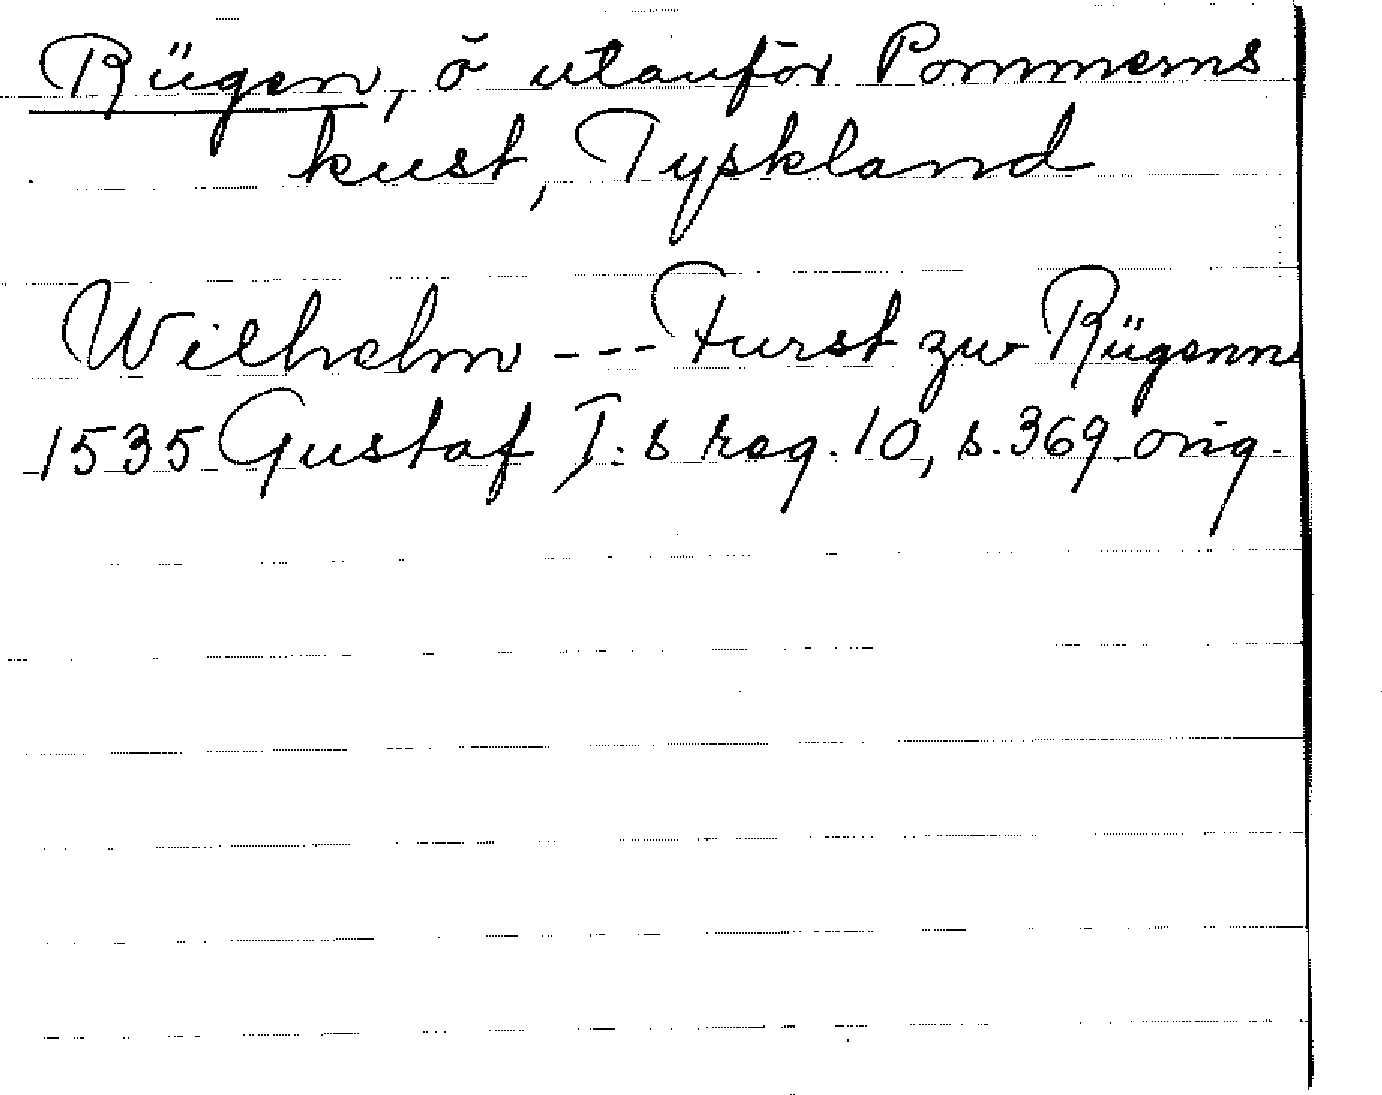 Rügen, ö utanför Pommerns
kust, Tyskland
Wilhelm --- Furst zu Rügenn
1535 Gustaf I:s reg. 10, s. 369 orig.